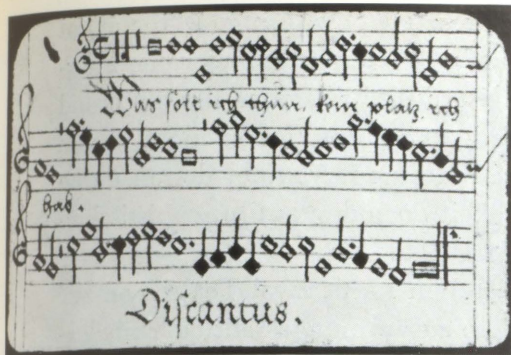 Was solt ich thun. kein platz ich
hab.
Discantus.